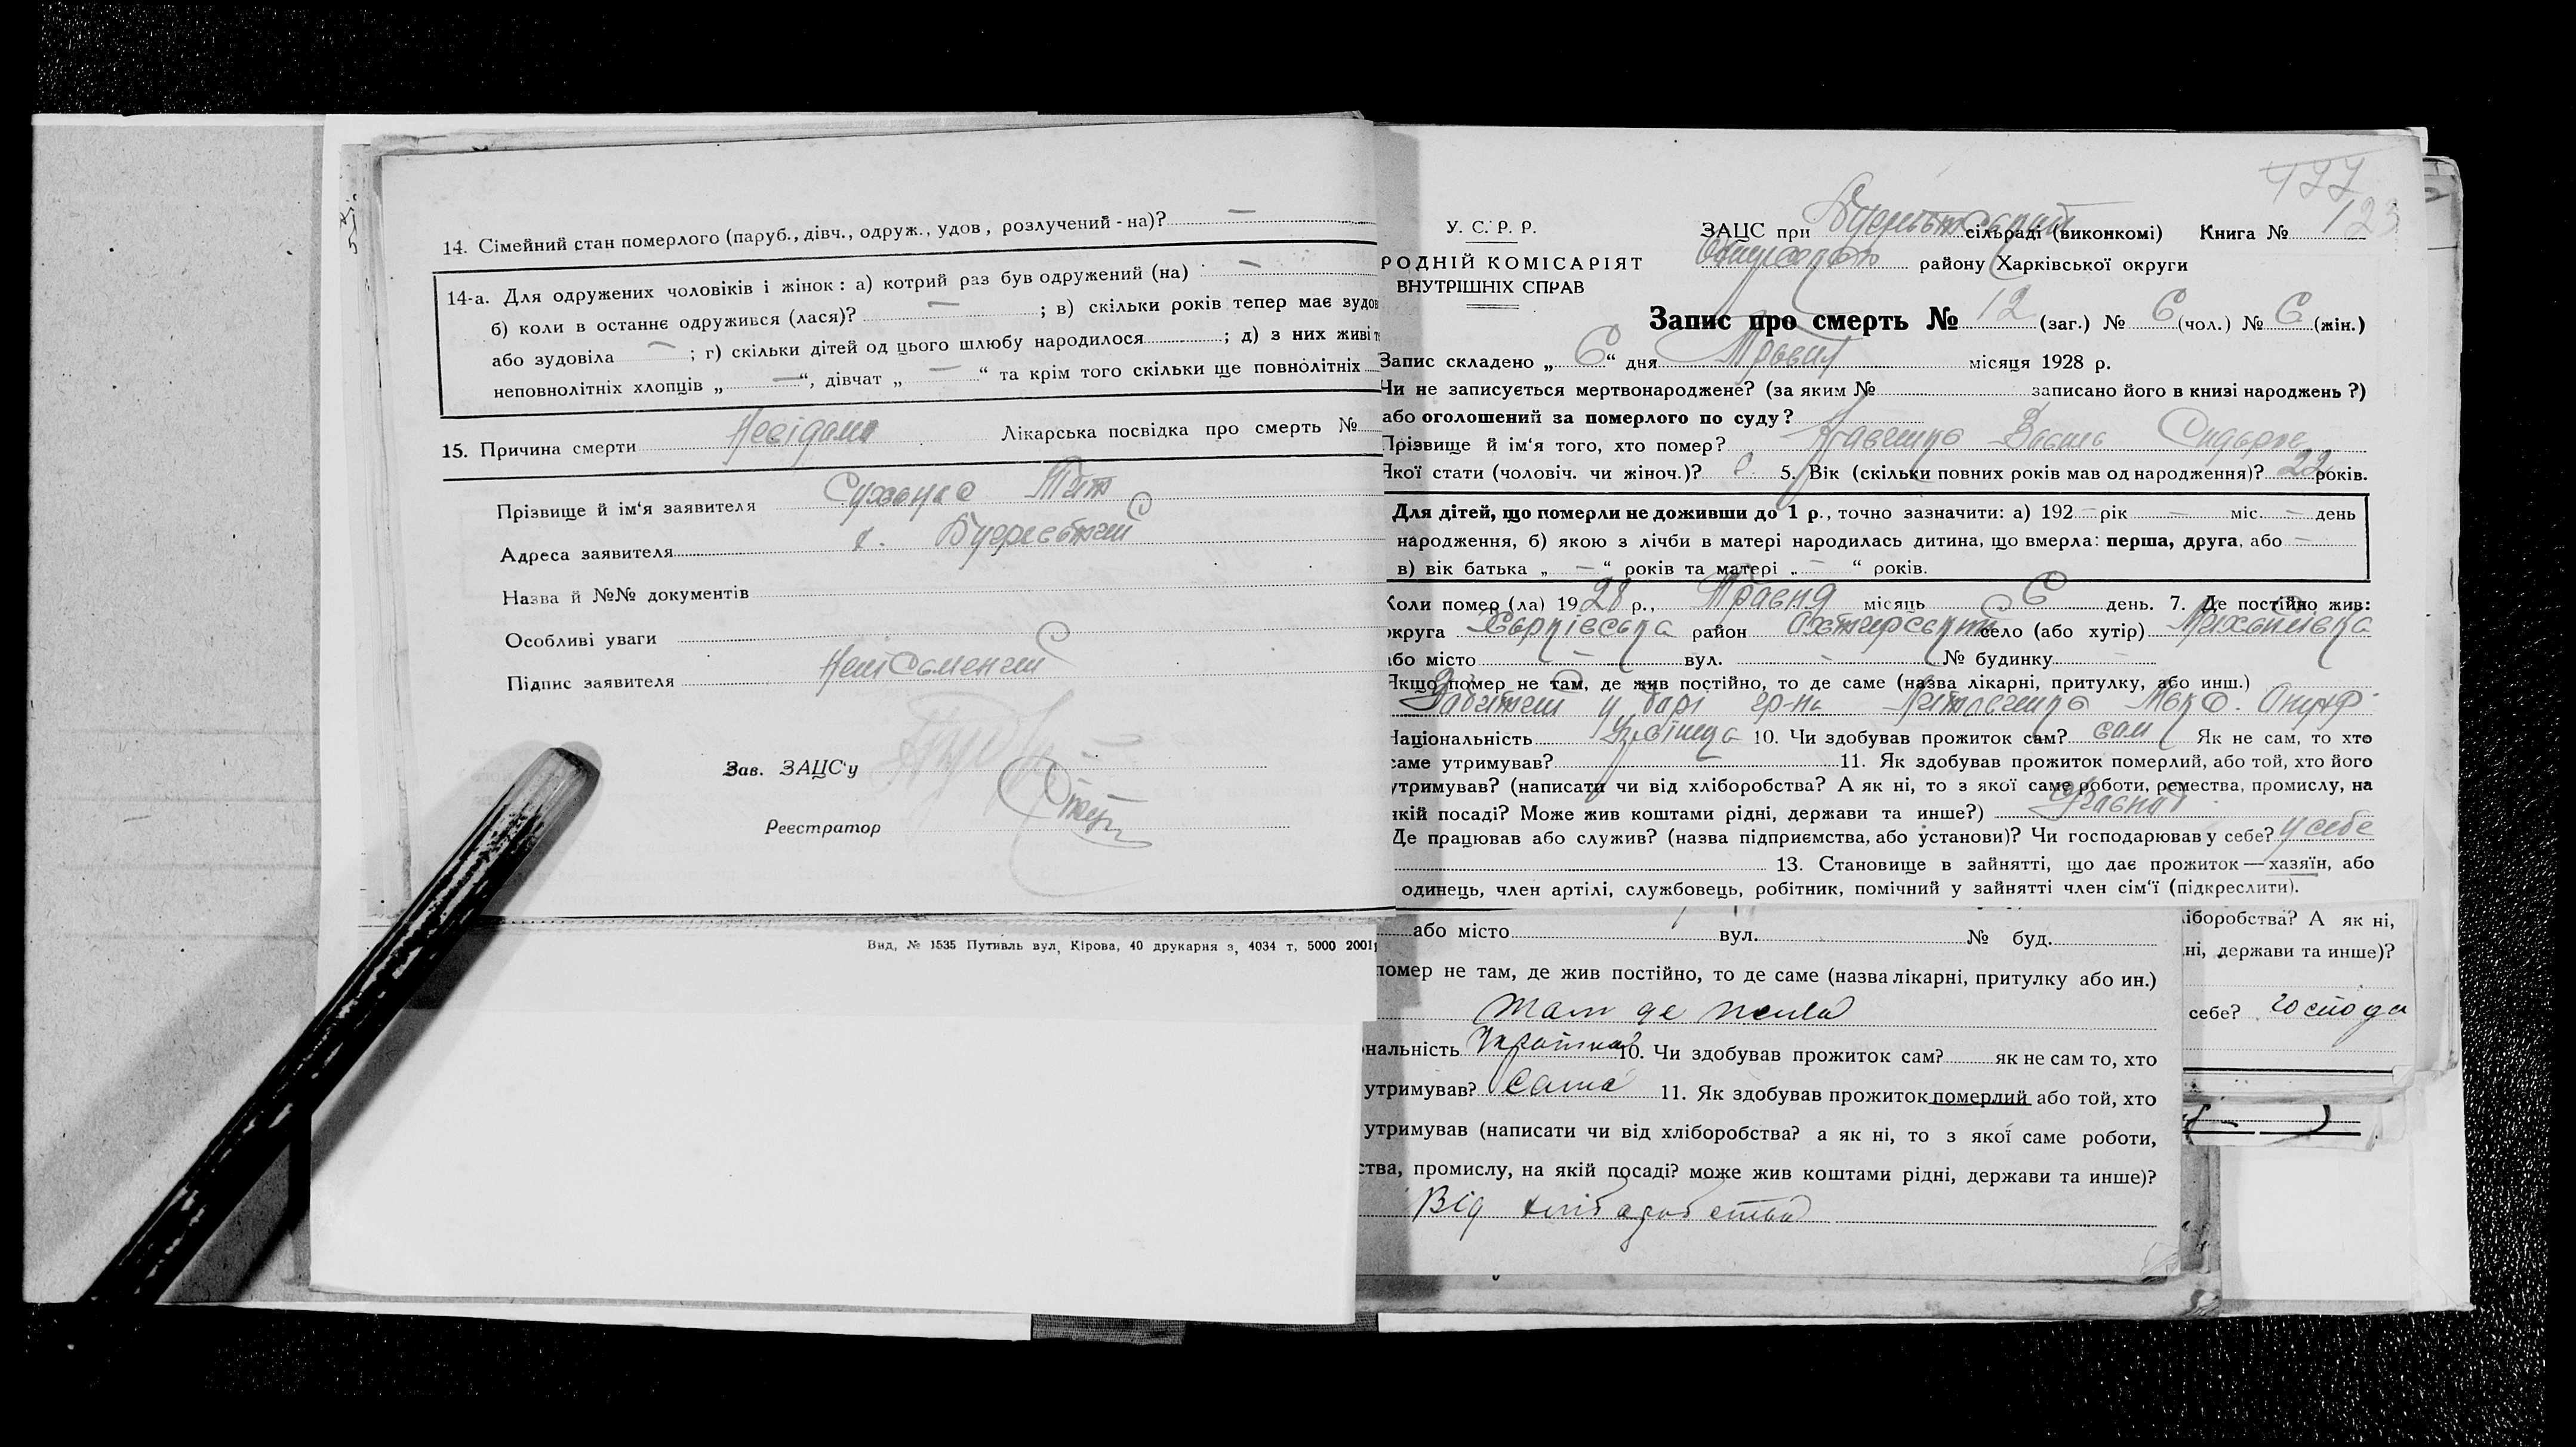 14. Сімейний стан померлого (паруб., дівч., одруж., удов, розлучений - на)? —
14-а. Для одружених чоловіків і жінок: а) котрий раз був одружений (на) —
б) коли в останнє одружився (лася)? — ; в) скільки років тепер має зудов
або зудовіла — ; г) скільки дітей од цього шлюбу народилося ; д) з них живі т
неповнолітніх хлопців „ — “, дівчат „ — “ та крім того скільки ще повнолітніх
15. Причина смерти Невідома Лікарська посвідка про смерть №
Прізвище й ім‘я заявителя
Адреса заявителя х.
Назва й №№ документів
Особливі уваги
Підпис заявителя
Зав. ЗАЦС‘у
Реєстратор
Вид, № 1535 Путивль вул, Кірова, 40 друкарня з, 4034 т, 5000 2001
123
У. С. Р. Р.
РОДНІЙ КОМІСАРІЯТ
ВНУТРІШНІХ СПРАВ
ЗАЦС при сільраді (виконкомі) Книга №
району Харківської округи
Запис про смерть № 12 (заг.) № 6 (чол.) № 6 (жін.)
Запис складено „ 6 “ дня Травня місяця 1928 р.
Чи не записується мертвонароджене? (за яким № записано його в книзі народжень ?)
або оголошений за померлого по суду?
Прізвище й ім‘я того, хто помер?
Якої стати (чоловіч. чи жіноч.)? 5. Вік (скільки повних років мав од народження)? 22 років.
Для дітей, що померли не доживши до 1 р., точно зазначити: а) 192 — рік — міс. — день
народження, б) якою з лічби в матері народилась дитина, що вмерла: перша, друга, або —
в) вік батька „ — “ років та матері „ — “ років.
Коли помер (ла) 1928 р., Травня місяць 6 день. 7. Де постійно жив:
округа Харківська район село (або хутір) Михайлівка
або місто — вул. — № будинку —
Якщо помер не там, де жив постійно, то де саме (назва лікарні, притулку, або инш.)
у гр-на
Національність 10. Чи здобував прожиток сам? сам Як не сам, то хто
саме утримував? 11. Як здобував прожиток померлий, або той, хто його
утримував? (написати чи від хліборобства? А як ні, то з якої саме роботи, ремества, промислу, на
якій посаді? Може жив коштами рідні, держави та инше?)
Де працював або служив? (назва підприємства, або установи)? Чи господарював у себе? у себе
13. Становище в зайнятті, що дає прожиток — хазяїн, або
одинець, член артілі, службовець, робітник, помічний у зайнятті член сім‘ї (підкреслити).
або місто вул. № буд.
помер не там, де жив постійно, то де саме (назва лікарні, притулку або ин.)
там де жила
нальність Українка 10. Чи здобував прожиток сам? як не сам то, хто
утримував? сама 11. Як здобував прожиток померлий або той, хто
утримував (написати чи від хліборобства? а як ні, то з якої саме роботи,
ства, промислу, на якій посаді? може жив коштами рідні, держави та инше)?
Від хліборобства
іборобства? А як ні,
ні, держави та инше)?
себе? господа